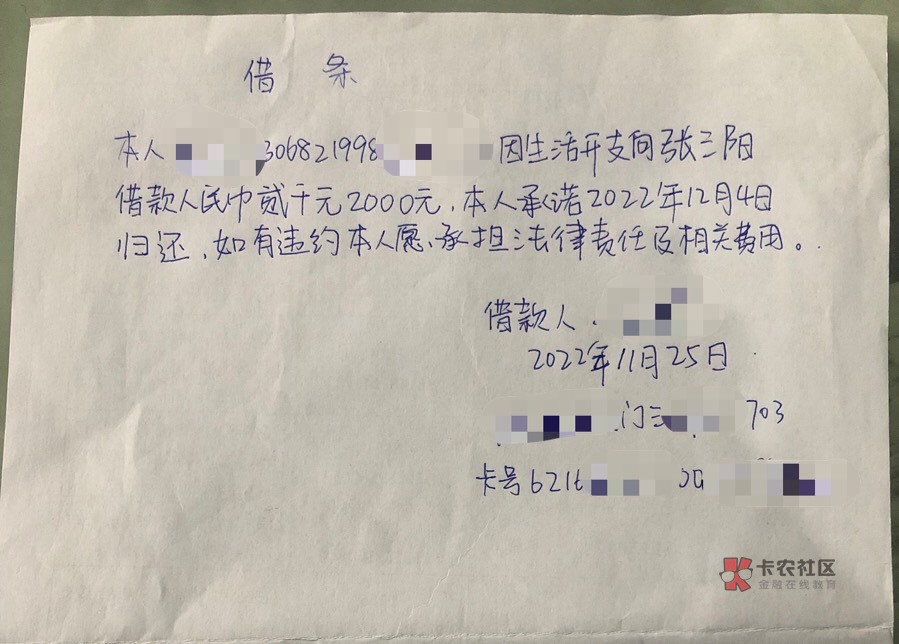 借条
本人 306821998 因生活开支向张三阳
借款人民巾贰千元2000元,本人承诺2022年12月4日
归还,如有违约本人愿承担法律责任及相关费用。
借款人
2022年11月25日
门三 703
卡号 621
卡农社区
金融在线教育